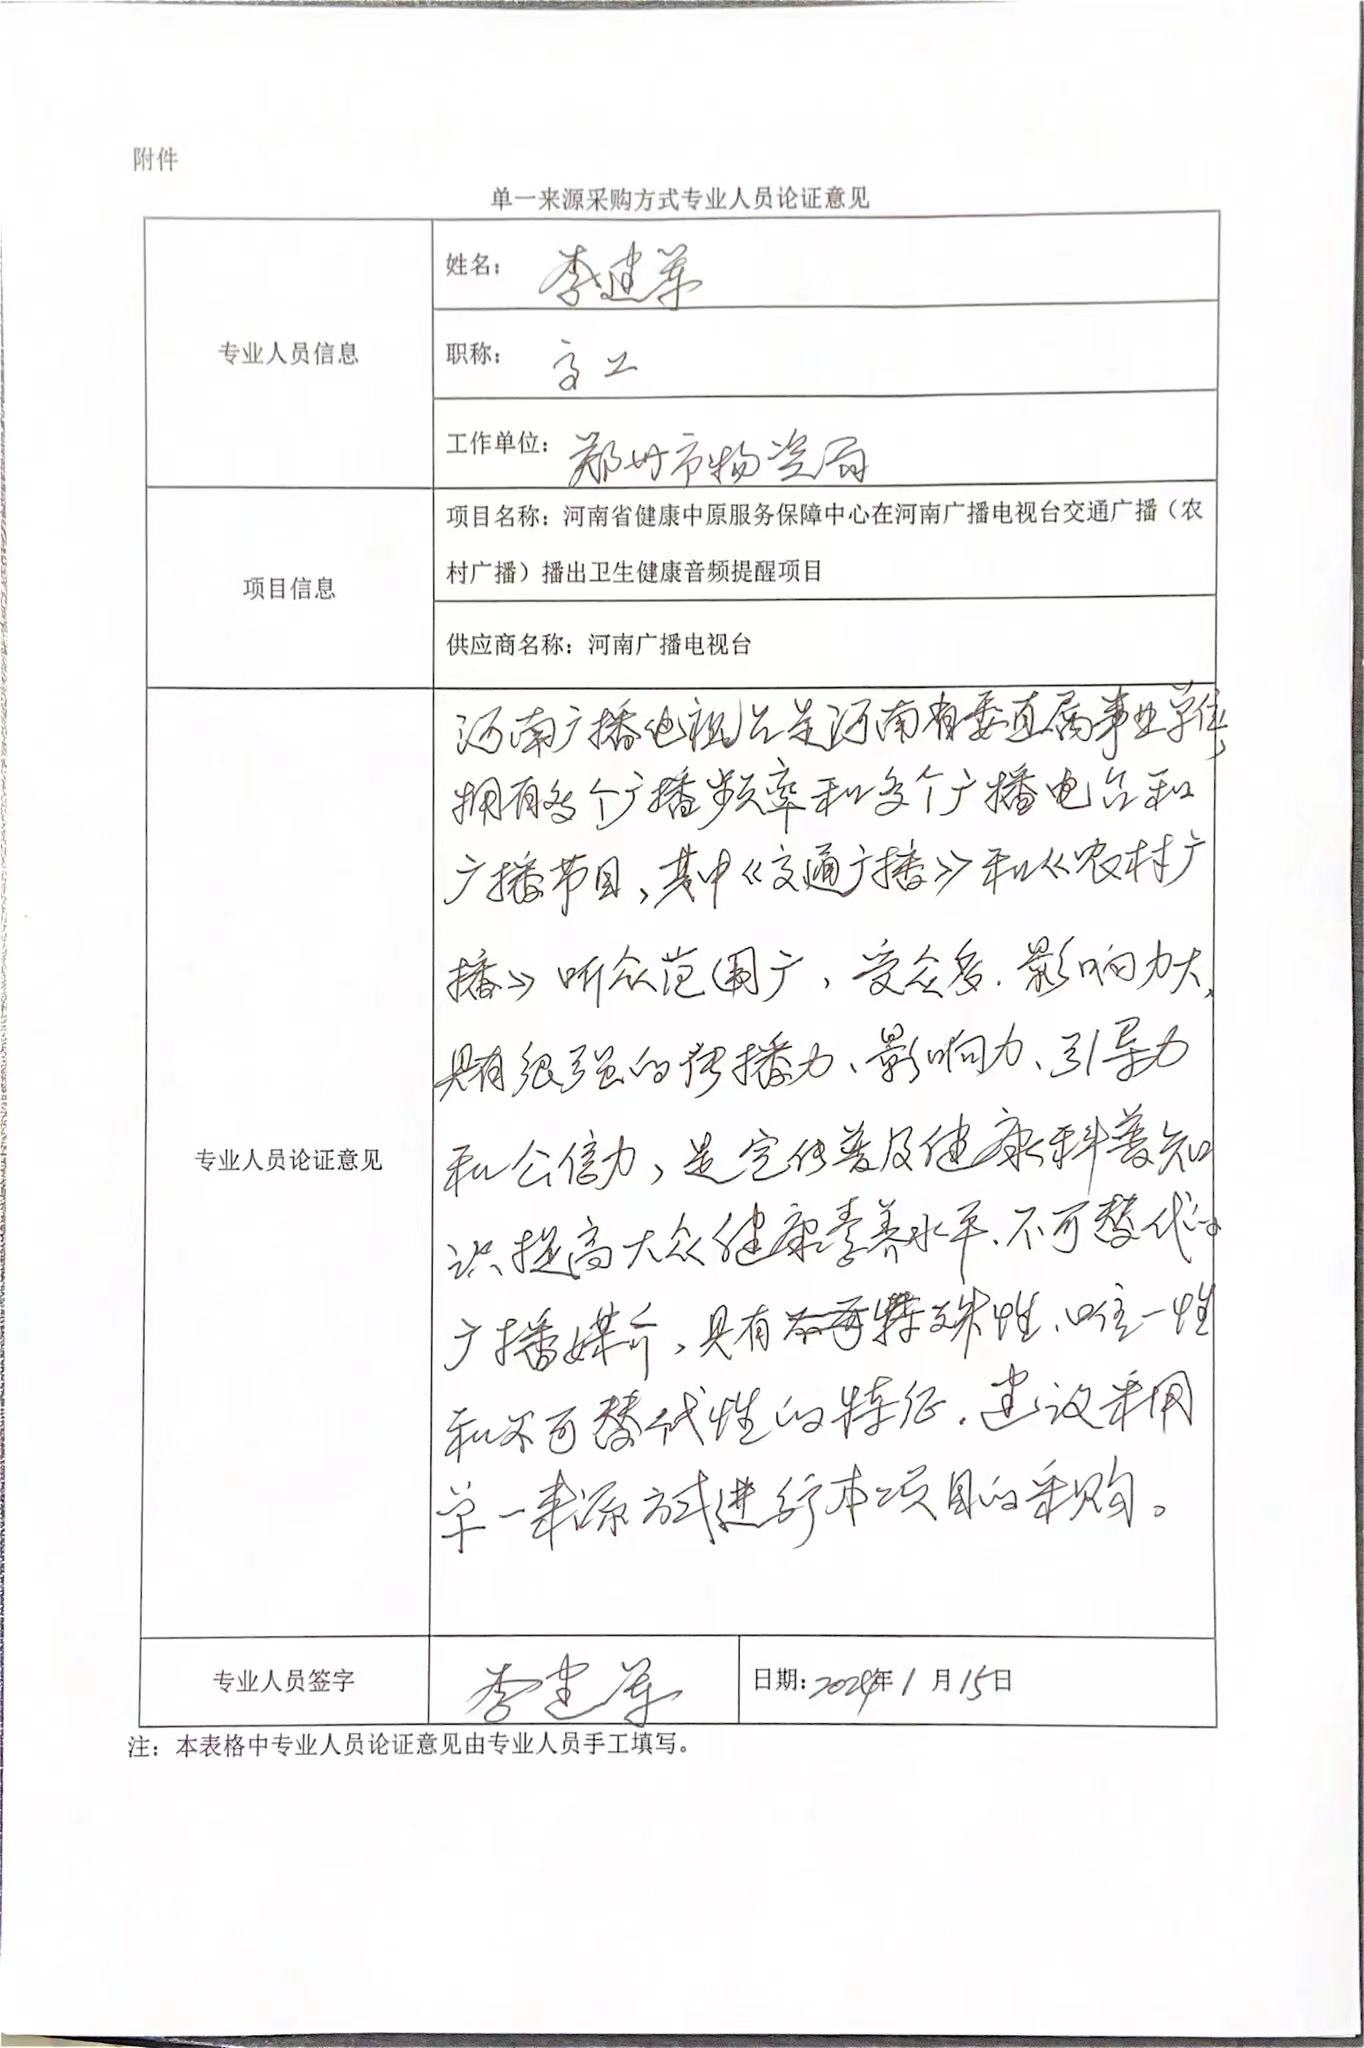 附件
单一来源采购方式专业人员论证意见
专业人员信息
姓名：李建军
职称：高工
工作单位：郑州市物资局
项目信息
项目名称：河南省健康中原服务保障中心在河南广播电视台交通广播（农
村广播）播出卫生健康音频提醒项目
供应商名称：河南广播电视台
专业人员论证意见
河南广播电视台是河南省委直属事业单位，
拥有多个广播频率和多个广播电台和
广播节目，其中《交通广播》和《农村广
播》听众范围广，受众多．影响力大，
具有很强的传播力、影响力、引导力
和公信力，是宣传普及健康科普知
识提高大众健康素养水平、不可替代的
广播媒介，具有特殊性、唯一性
和不可替代性的特征．建议采用
单一来源方式进行本项目的采购。
专业人员签字
李建军
日期：2024年1月15日
注：本表格中专业人员论证意见由专业人员手工填写。